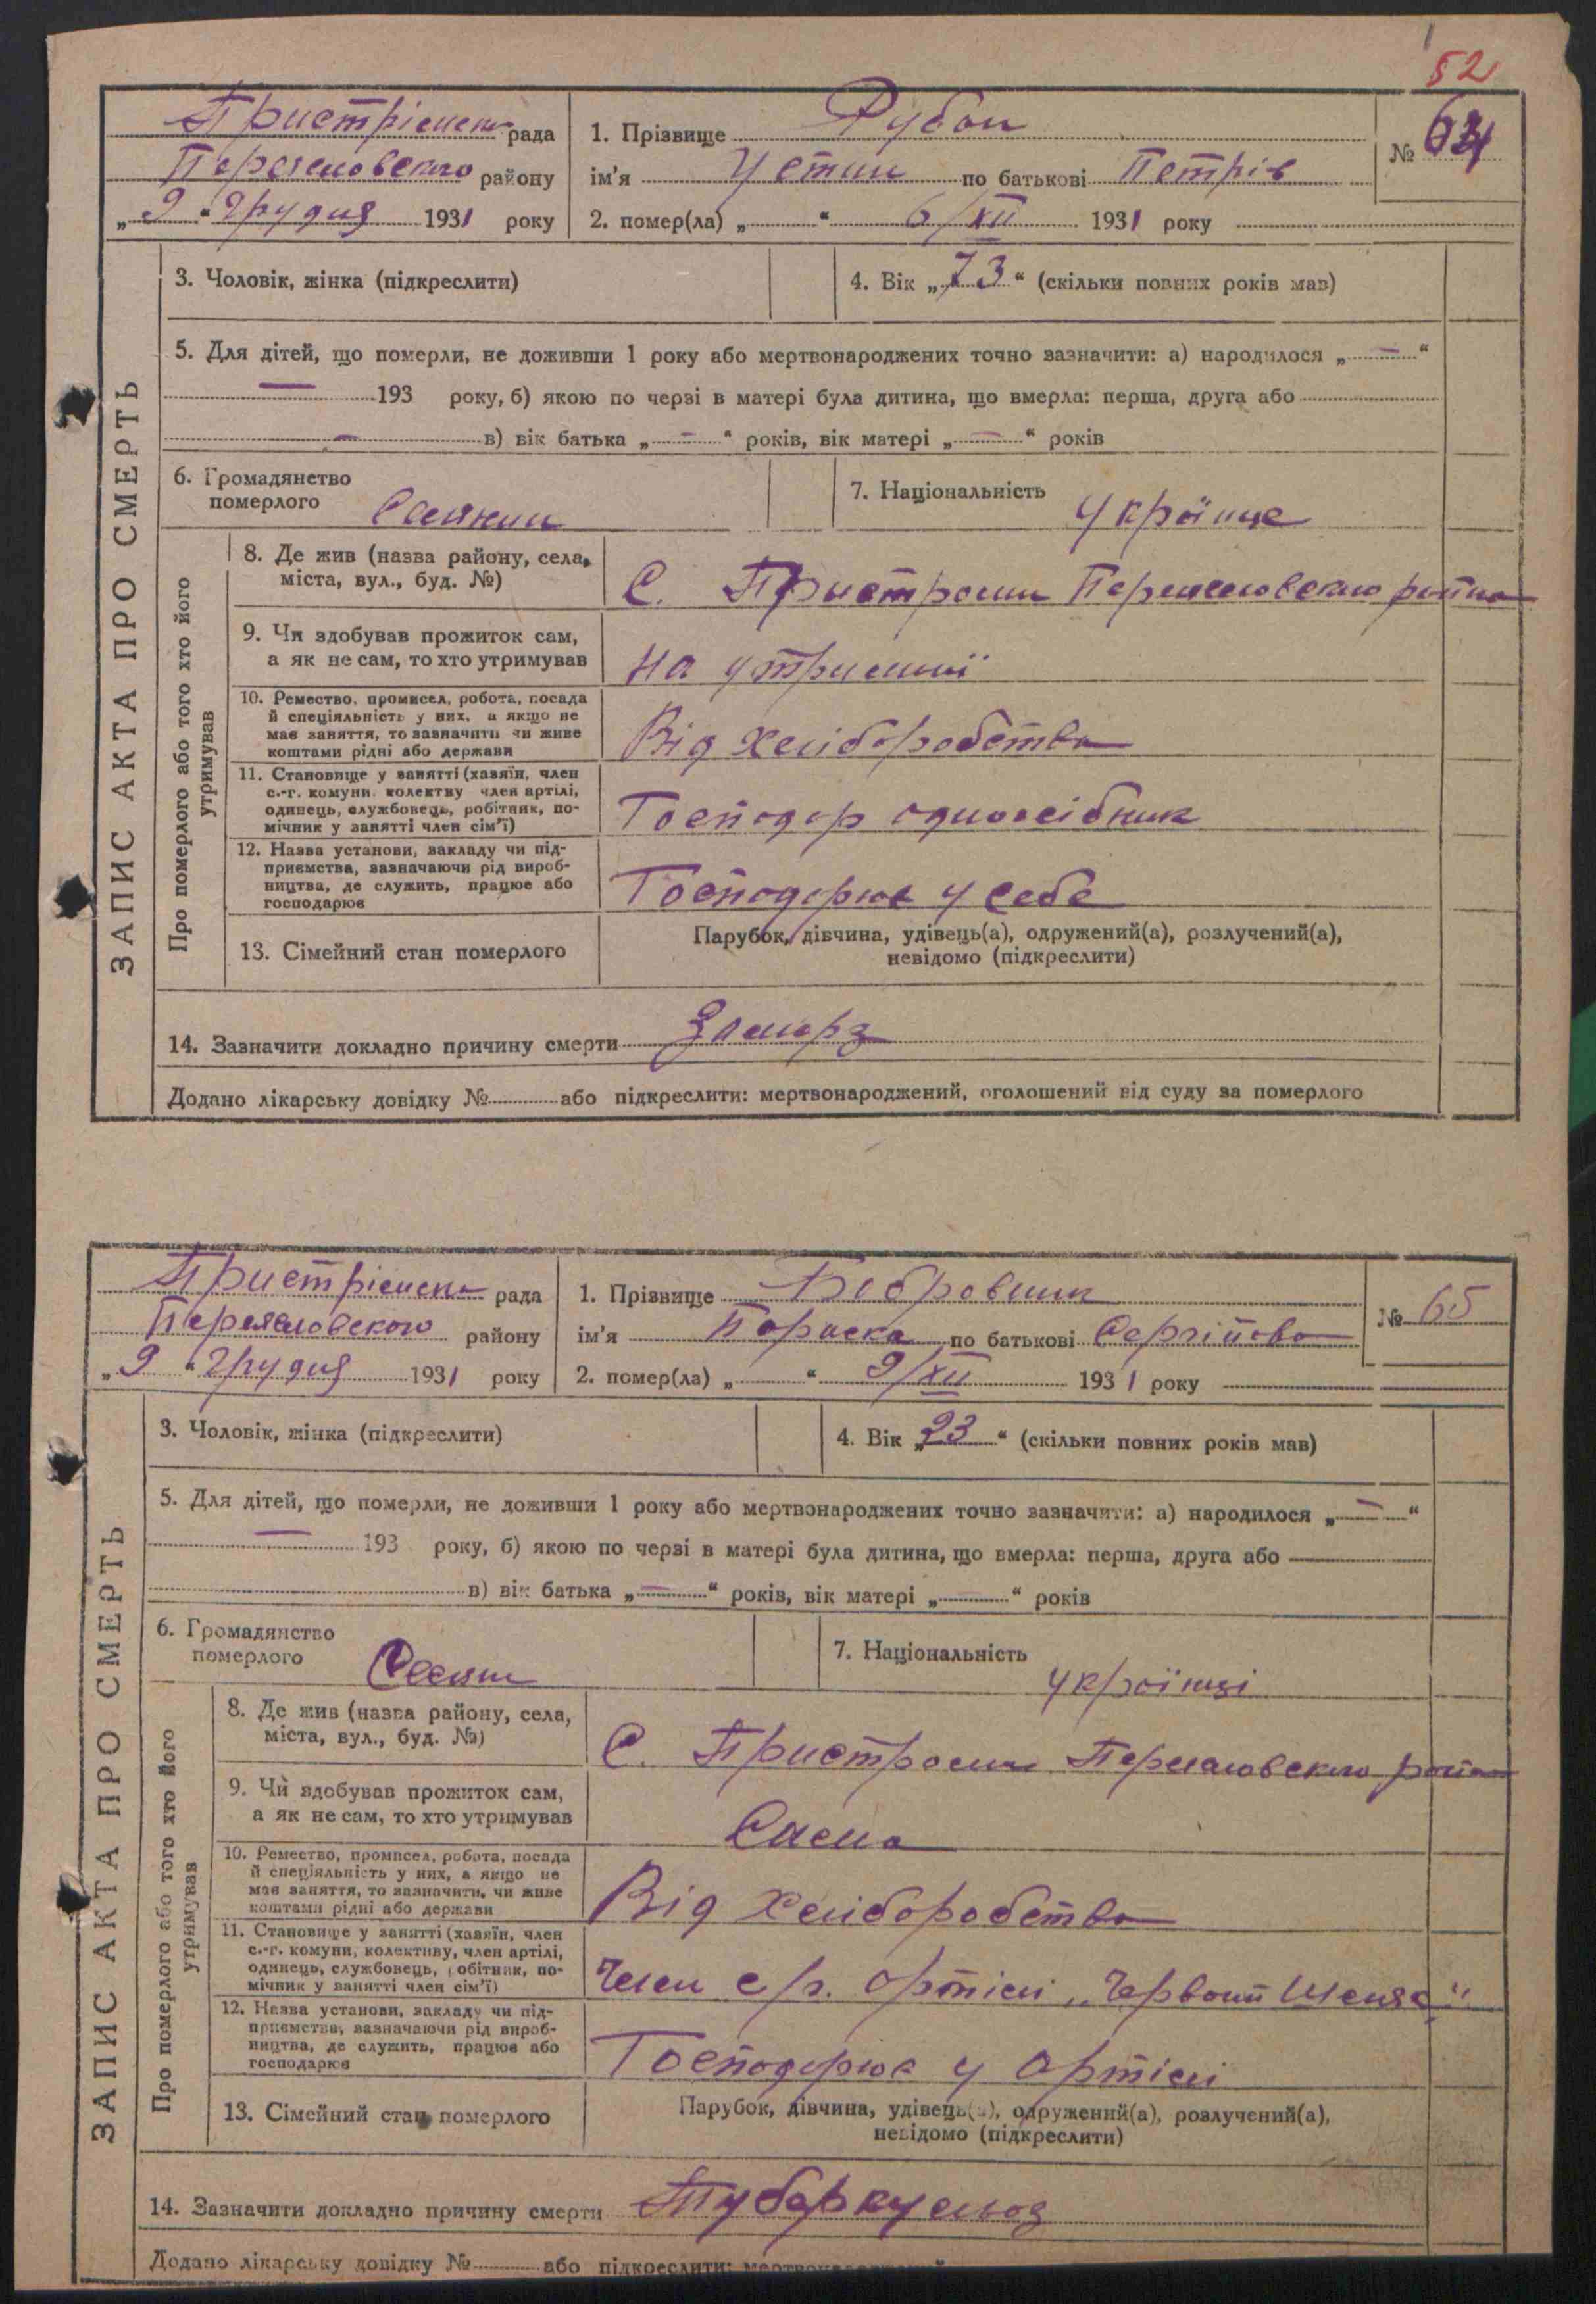 52
Пристрімська рада
Переяславского району
„9“ Грудня 1931 року
1. Прізвище Рубан
№ 64
ім'я Устин по батькові Петрів
2. помер(ла) „ “ 6/XII 1931 року
ЗАПИС АКТА ПРО СМЕРТЬ
3. Чоловік, жінка (підкреслити)
4. Вік „73“ (скільки повних років мав)
5. Для дітей, що померли, не доживши 1 року або мертвонароджених точно зазначити: а) народилося „—“
— 193 року, б) якою по черзі в матері була дитина, що вмерла: перша, друга або
— в) вік батька „—“ років, вік матері „—“ років
6. Громадянство
померлого
7. Національність Українце
Про померлого або того хто його
утримував
8. Де жив (назва району, села,
міста, вул., буд. №)
С. Пристроми Переяславского району
9. Чи здобував прожиток сам,
а як не сам, то хто утримував
на утримнії
10. Ремество, промисел, робота, посада
й спеціяльність у них, а якщо не
має заняття, то зазначити чи живе
коштами рідні або держави
Від хліборобства
11. Становище у занятті (хазяїн, член
с.-г. комуни, колективу член артілі,
одинець, службовець, робітник, по-
мічник у занятті член сім'ї)
Господар одноосібник
12. Назва установи, закладу чи під-
приємства, зазначаючи рід вироб-
ництва, де служить, працює або
господарює
Господарює у себе
13. Сімейний стан померлого
Парубок, дівчина, удівець(а), одружений(а), розлучений(а),
невідомо (підкреслити)
14. Зазначити докладно причину смерти Замерз
Додано лікарську довідку № або підкреслити: мертвонароджений, оголошений від суду за померлого
Пристрімска рада
Переяславского району
„9“ Грудня 1931 року
1. Прізвище Бобровник
№ 65
ім'я Параска по батькові Сергійова
2. помер(ла) „ “ 9/XII 1931 року
ЗАПИС АКТА ПРО СМЕРТЬ
3. Чоловік, жінка (підкреслити)
4. Вік „23“ (скільки повних років мав)
5. Для дітей, що померли, не доживши 1 року або мертвонароджених точно зазначити: а) народилося „—“
— 193 року, б) якою по черзі в матері була дитина, що вмерла: перша, друга або
в) вік батька „—“ років, вік матері „—“ років
6. Громадянство
померлого
7. Національність Українці
Про померлого або того хто його
утримував
8. Де жив (назва району, села,
міста, вул., буд. №)
С. Пристроми Переяславского району
9. Чи здобував прожиток сам,
а як не сам, то хто утримував
Сама
10. Ремество, промисел, робота, посада
й спеціяльність у них, а якщо не
має заняття, то зазначити, чи живе
коштами рідні або держави
Від хліборобства
11. Становище у занятті (хазяїн, член
с.-г. комуни, колективу, член артілі,
одинець, службовець, робітник, по-
мічник у занятті член сім'ї)
Член с/г. артілі „Червоний Шлях“
12. Назва установи, закладу чи під-
приємства, зазначаючи рід вироб-
ництва, де служить, працює або
господарює
Господарює у артілі
13. Сімейний стан померлого
Парубок, дівчина, удівець(а), одружений(а), розлучений(а),
невідомо (підкреслити)
14. Зазначити докладно причину смерти Туберкульоз
Додано лікарську довідку № або підкреслити: мертвонароджений